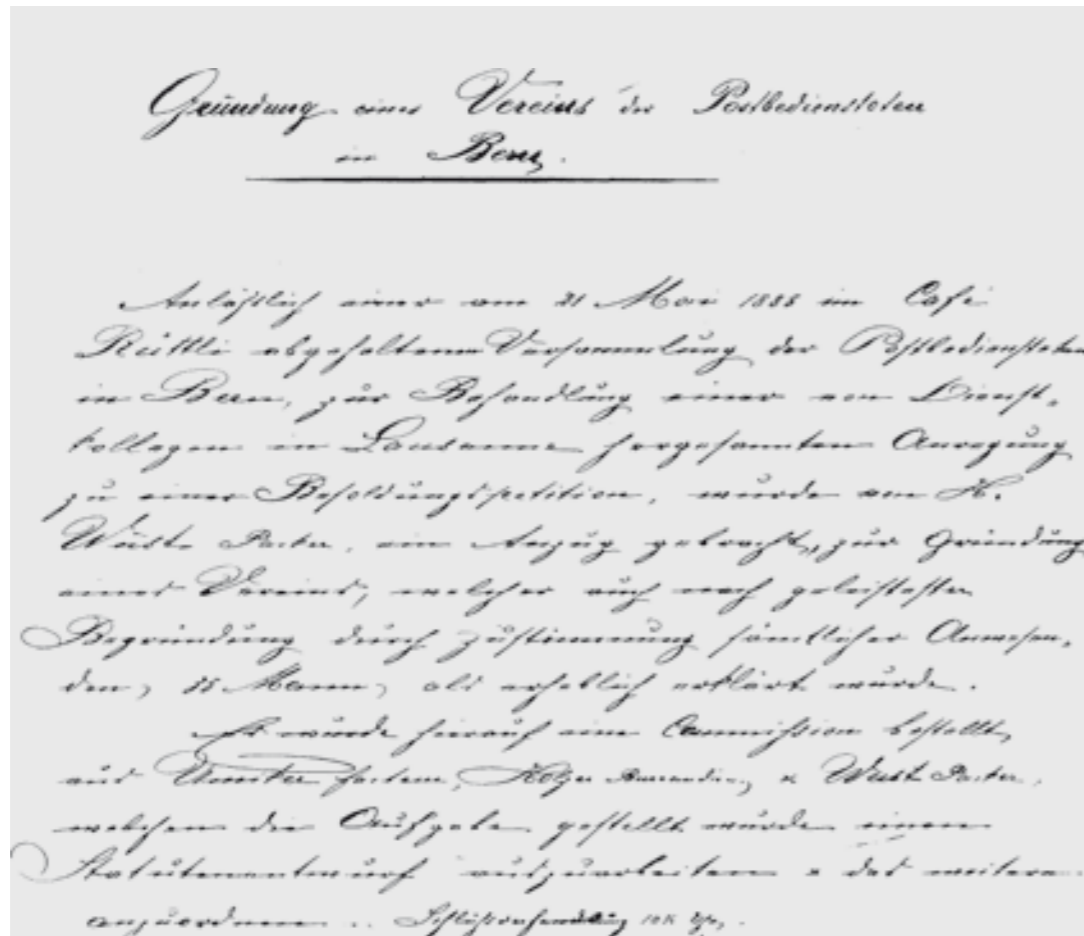 Gründung eines Vereins der Postbediensteten
in Bern.
Anläßlich einer am 21 Mai 1888 im Café
Rüttli abgehaltenen Versammlung der Postbediensteten
in Bern, zur Behandlung einer von Dienst-
kollegen in Lausanne hergesannten Anregung
zu einer Besoldungspetition, wurde von H.
Wüst Packer, ein Anzug gebracht, zur Gründung
eines Vereins, welcher auch nach geleisteter
Begründung durch Zustimmung sämtlicher Anwesen-
den, Mann, als erheblich erklärt wurde.
Es wurde hierauf eine Commission bestellt,
aus facteur, Hofer & Wüst Packer,
welchen die Aufgabe gestellt wurde einen
Statutenentwurf auszuarbeiten & das weitere
anzuordnen .. Schluß